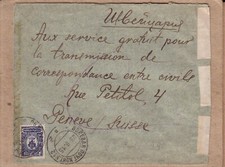 Швейцария
Aux service gratuit pour
la transmission de
correspondance entre civils
Rue Petitot 4
Genève / Suisse